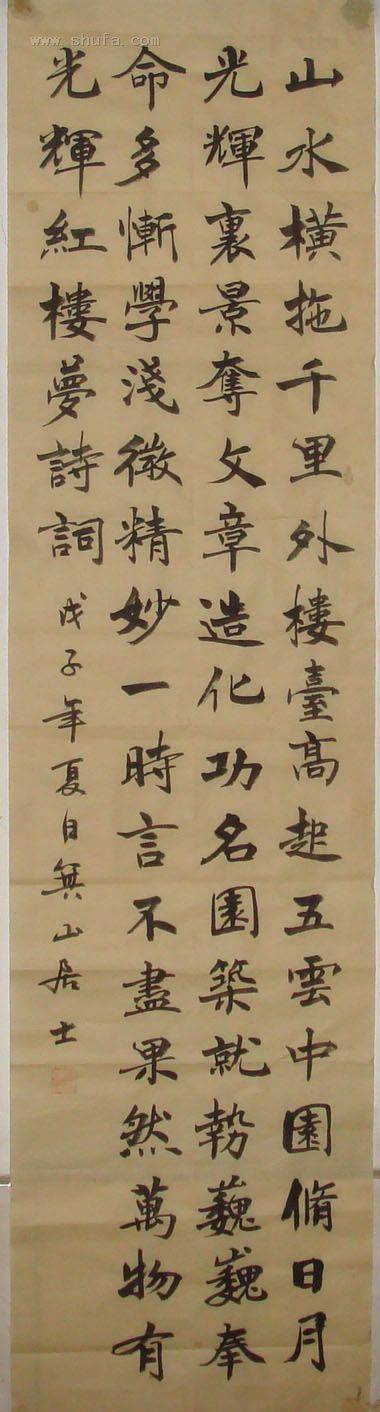 www.shufa.com
山水橫拖千里外樓臺高起五雲中園脩日月
光輝裏景奪文章造化功名園築就勢巍巍奉
命多慚學淺微精妙一時言不盡果然萬物有
光輝紅樓夢詩詞
戊子年夏日無山居士